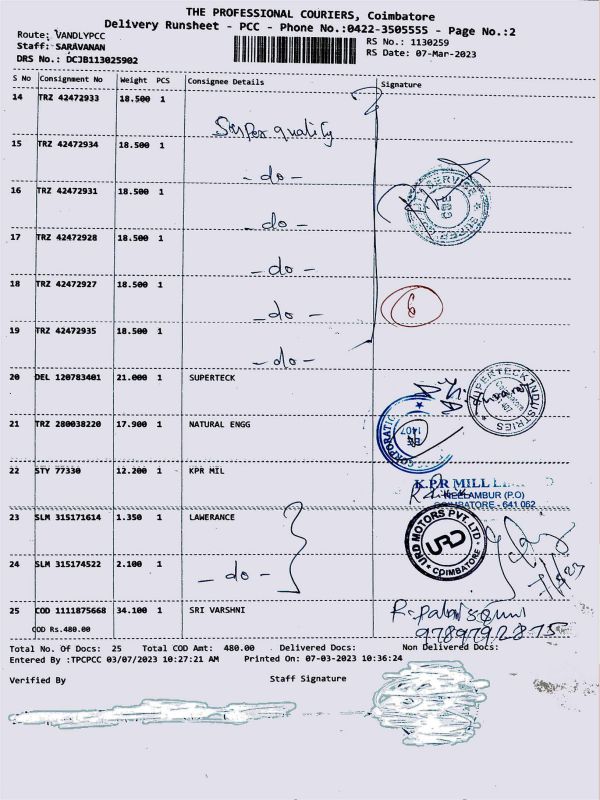 THE PROFESSIONAL COURIERS, Coimbatore
Delivery Runsheet - PCC - Phone No.:0422-3505555 - Page No.:2
Route: VANDLYPCC
RS No.: 1130259
Staff: SARAVANAN
RS Date: 07-Mar-2023
DRS No.: DCJB113025902
S No Consignment No Weight PCS Consignee Details Signature
14 TRZ 42472933 18.500 1
Super quality
15 TRZ 42472934 18.500 1
- do -
16 TRZ 42472931 18.500 1
- do -
17 TRZ 42472928 18.500 1
- do -
18 TRZ 42472927 18.500 1
- do -
6
19 TRZ 42472935 18.500 1
- do -
20 DEL 120783401 21.000 1 SUPERTECK
SUPERTECK INDUSTRIES
21 TRZ 280038220 17.900 1 NATURAL ENGG
1407
22 STY 77330 12.200 1 KPR MIL
K.P.R MILL
NEELAMBUR (P.O)
COIMBATORE - 641 062
23 SLM 315171614 1.350 1 LAWERANCE
URD MOTORS PVT. LTD
URD
COIMBATORE
24 SLM 315174522 2.100 1
- do -
25 COD 1111875668 34.100 1 SRI VARSHNI
COD Rs.480.00
9789792875
Total No. Of Docs: 25 Total COD Amt: 480.00 Delivered Docs: Non Delivered Docs:
Entered By :TPCPCC 03/07/2023 10:27:21 AM Printed On: 07-03-2023 10:36:24
Verified By Staff Signature